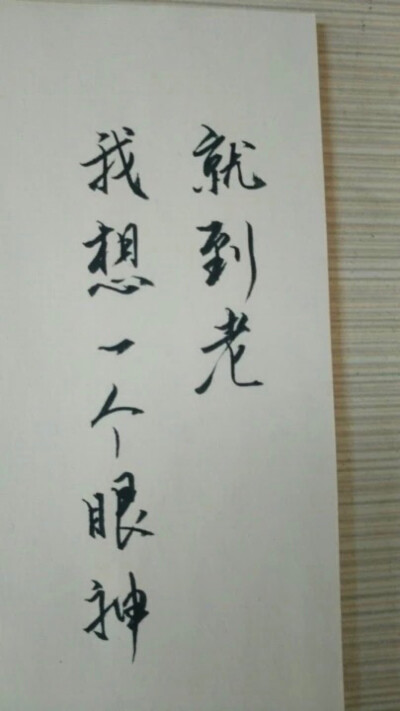 我想一个眼神
就到老